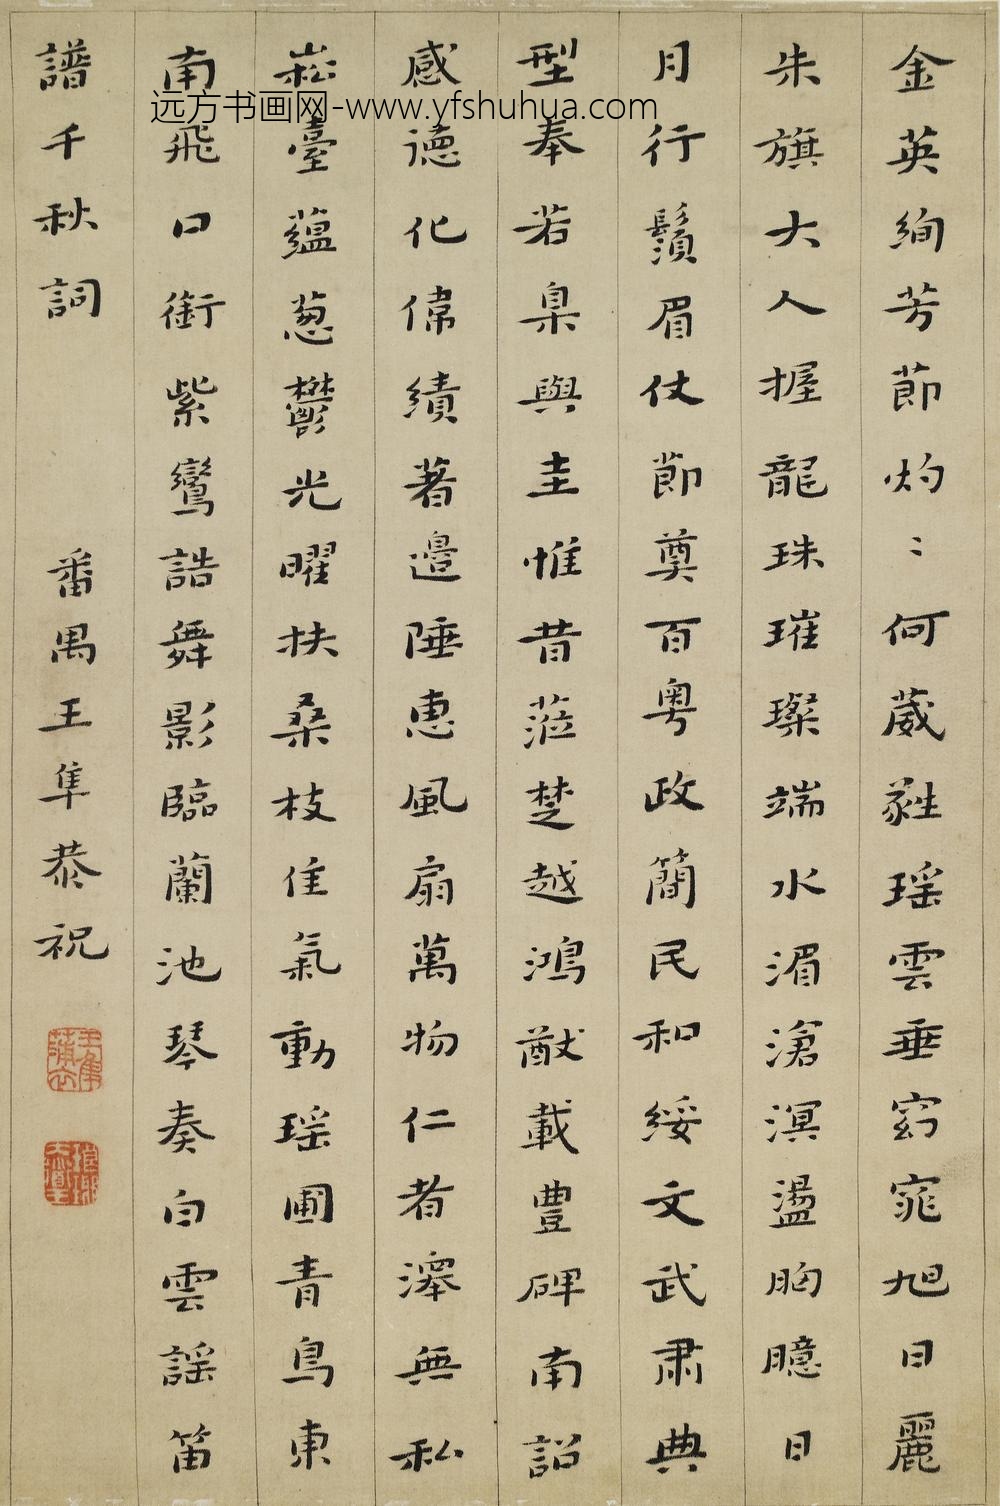 金英絢芳節灼〻何葳蕤瑶雲垂窈窕旭日麗
朱旗大人握龍珠璀璨端水湄滄溟盪胸臆日
月行鬚眉仗節奠百粤政簡民和綏文武肅典
型奉若臬與圭惟昔蒞楚越鴻猷載豐碑南詔
感德化偉績著邊陲惠風扇萬物仁者澤無私
崧臺蘊葱鬱光曜扶桑枝佳氣動瑶圃青鳥東
南飛口銜紫鸞誥舞影臨蘭池琴奏白雲謡笛
譜千秋詞
番禺王隼恭祝
王隼
蒲衣
远方书画网-www.yfshuhua.com